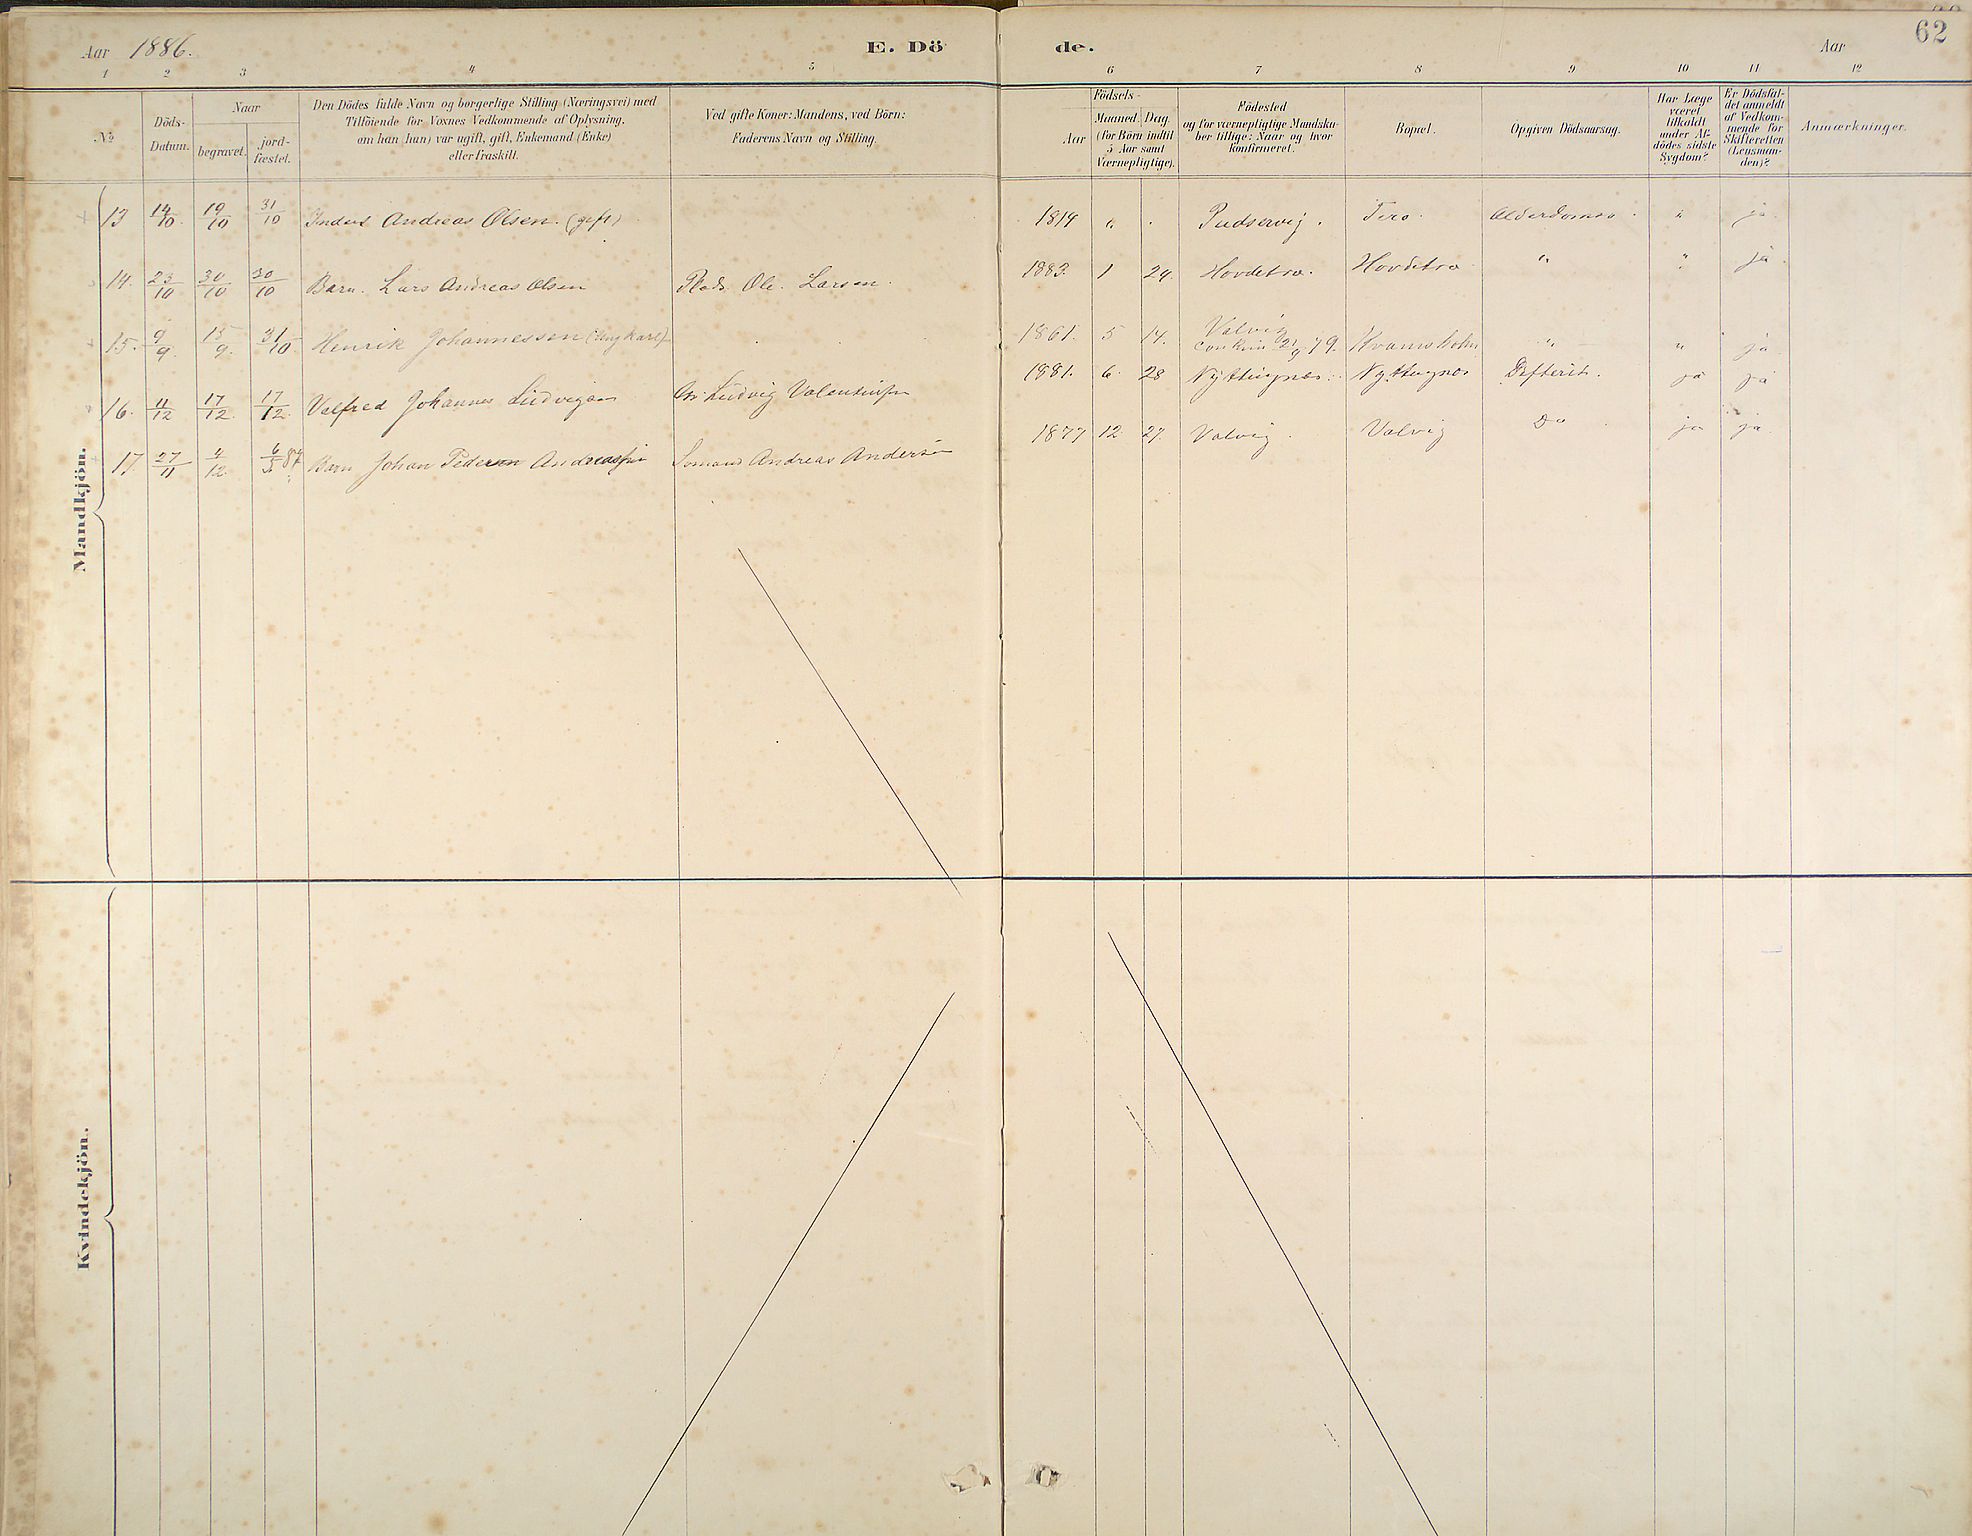 Aar 1886.
E. Döde.
Aar
62
1 2 3 4 5 6 7 8 9 10 11 12
No
Döds-Datum.
Naar
begravet.
jord-fæstet.
Den Dödes fulde Navn og borgerlige Stilling (Næringsvei) med
Tilföiende for Voxnes Vedkommende af Oplysning,
om han (hun) var ugift, gift, Enkemand (Enke)
eller fraskilt.
Ved gifte Koner: Mandens, ved Börn:
Faderens Navn og Stilling.
Födsels-
Aar
Maaned. Dag
(for Börn indtil
5 Aar samt
Værnepligtige).
Födested
og for værnepligtige Mandska-
ber tillige: Naar og hvor
konfirmeret.
Bopæl.
Opgiven Dödsaarsag.
Har Læge
været
tilkaldt
under Af-
dödes sidste
Sygdom?
Er Dödsfal-
det anmeldt
af Vedkom-
mende for
Skifteretten
(Lensman-
den)?
Anmærkninger.
Mandkjön.
13 14/10 19/10 31/10 Inderst Andreas Olsen. (gift) 1814 " . Pudservig. Terø. Alderdomss. " ja.
14. 23/10 30/10 30/10 Barn. Lars Andreas Olsen Plads. Ole. Larsen. 1883. 1 24. Hovdetrø. Hovdetrø " " ja.
15. 9/9. 15/9. 31/10 Henrik Johannessen (Ungkarl) 1861. 5 14. Valvig Conferm 21/9 79. Kvamsholm " " ja
16. 11/12 17/12 17/12. Valfred Johannes Ludvigsen Ludvig Valentinsen 1881. 6. 28 Nyttingnes. Nyttingnes Difterit. ja ja
17. 27/11 4/12. 6/3 87 Barn Johan Pedersen Andreassen Sømand Andreas Andersen 1877 12. 27. Valvig. Valvig Do ja ja.
Kvindekjön.